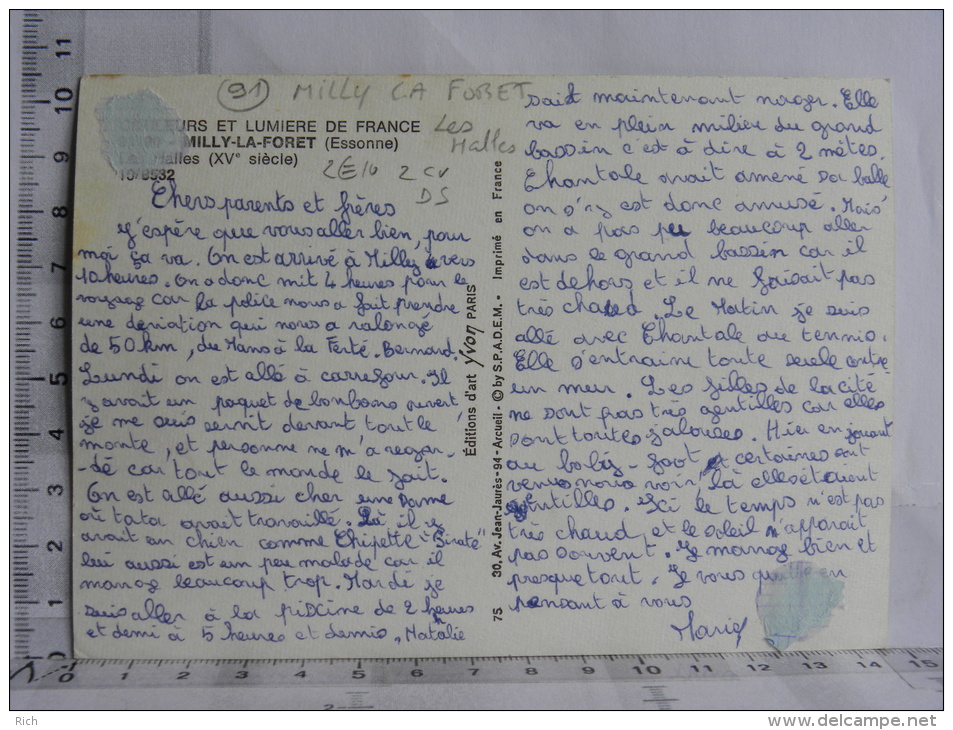 91 MILLY LA FORET
Les Halles
2E/10 2 CV
DS
COULEURS ET LUMIERE DE FRANCE
MILLY-LA-FORET (Essonne)
Les Halles (XVe siècle)
10/8532
Chers parents et frères
J'espère que vous aller bien, pour
moi ça va. On est arrivé à Milly vers
10 heures. On a donc mit 4 heures pour le
voyage car la police nous a fait prendre
une dériation qui nous a ralongé
de 50 km, du Mans à la Ferté-Bernard.
Lundi on est allé à carrefour. Il
y avait un paquet de bonbons ouvert
je me suis servit devant tout le
monte, et personne ne m'a regar-
-dé car tout le monde le fait.
On est allé aussi cher une Dame
où tata avait travaillé. Là il y
avait un chien comme Chipette "Pirate"
lui aussi est un peu malade car il
mange beaucoup trop. Mardi je
suis aller à la piscine de 2 heures
et demi à 5 heures et demie, Natalie
sait maintenant nager. Elle
va en plein milieu du grand
bassin c'est à dire à 2 mètes.
Chantale avait amené sa balle
on s'y est donc amusé. Mais
on a pas pu beaucoup aller
dans le grand bassin car il
est dehors et il ne faisait pas
très chaud. Le Matin je suis
allé avec Chantale au tennis.
Elle s'entraine toute seule contre
un mur. Les filles de la cité
ne sont pas très gentilles car elles
sont toutes jalouses. Hier en jouant
au baby-foot et certaines sont
venues nous voir là elles étaient
gentilles. Ici le temps n'est pas
très chaud, et le soleil n'apparait
pas souvent. Je mange bien et
presque tout. Je vous quitte en
pensant à vous
Éditions d'art Yvon PARIS
75 30, Av. Jean-Jaurès - 94 - Arcueil - © by S.P.A.D.E.M. - Imprimé en France
0 1 2 3 4 5 6 7 8 9 10 11 12 13 14 15
1 2 3 4 5 6 7 8 9 10 11
Rich
www.delcampe.net